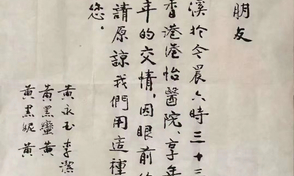 朋友
溪於今晨六時三十三
香港港怡醫院、享年
年的交情，因眼前
請原諒我們用這種
您。
黃永玉 李
黃黑蠻 黃
黃黑妮 黃